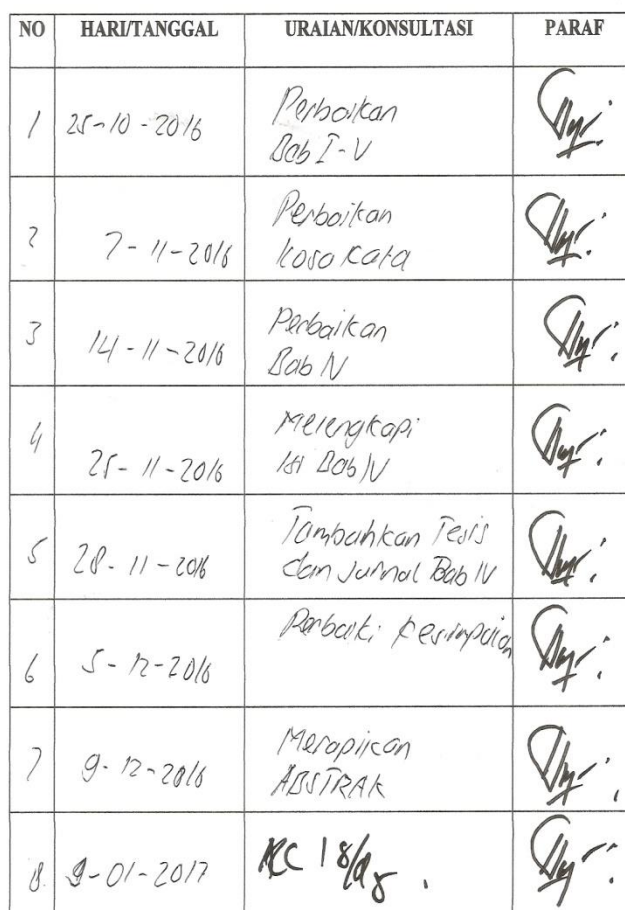 NO HARI/TANGGAL URAIAN/KONSULTASI PARAF
1 25-10-2016 Perbaikan
Bab I-V
2 7-11-2016 Perbaikan
kosa kata
3 14-11-2016 Perbaikan
Bab IV
4 25-11-2016 Melengkapi
isi Bab IV
5 28-11-2016 Tambahkan Tesis
dan jurnal Bab IV
6 5-12-2016 Perbaiki kesimpulan
7 9-12-2016 Merapikan
ABSTRAK
8. 9-01-2017